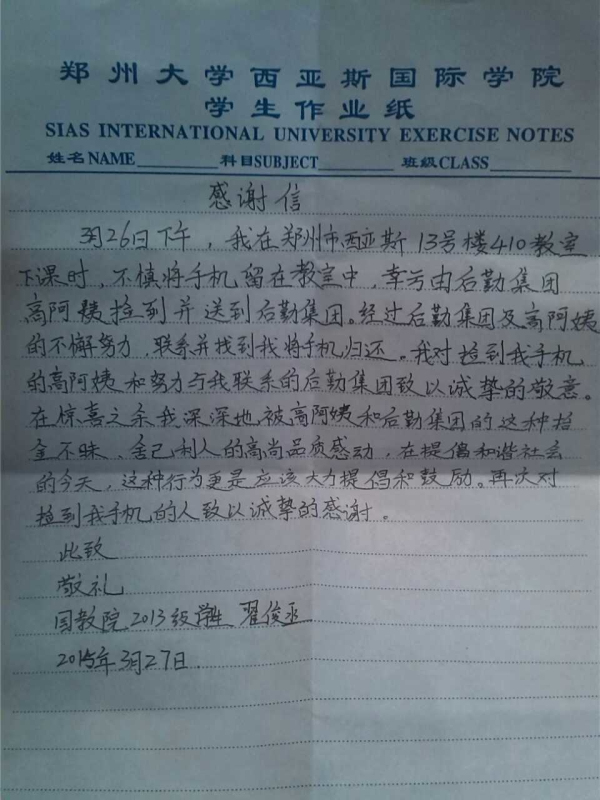 郑州大学西亚斯国际学院
学生作业纸
SIAS INTERNATIONAL UNIVERSITY EXERCISE NOTES
姓名NAME________科目SUBJECT________班级CLASS________
感谢信
3月26日下午，我在郑州市西亚斯13号楼410教室
下课时，不慎将手机留在教室中，幸亏由后勤集团
高阿姨捡到并送到后勤集团。经过后勤集团及高阿姨
的不懈努力，联系并找到我将手机归还。我对捡到我手机
的高阿姨和努力与我联系的后勤集团致以诚挚的敬意。
在惊喜之余我深深地被高阿姨和后勤集团的这种拾
金不昧、舍己利人的高尚品质感动，在提倡和谐社会
的今天，这种行为更是应该大力提倡和鼓励。再次对
捡到我手机的人致以诚挚的感谢。
此致
敬礼
国教院2013级学生 翟俊丞
2015年3月27日.